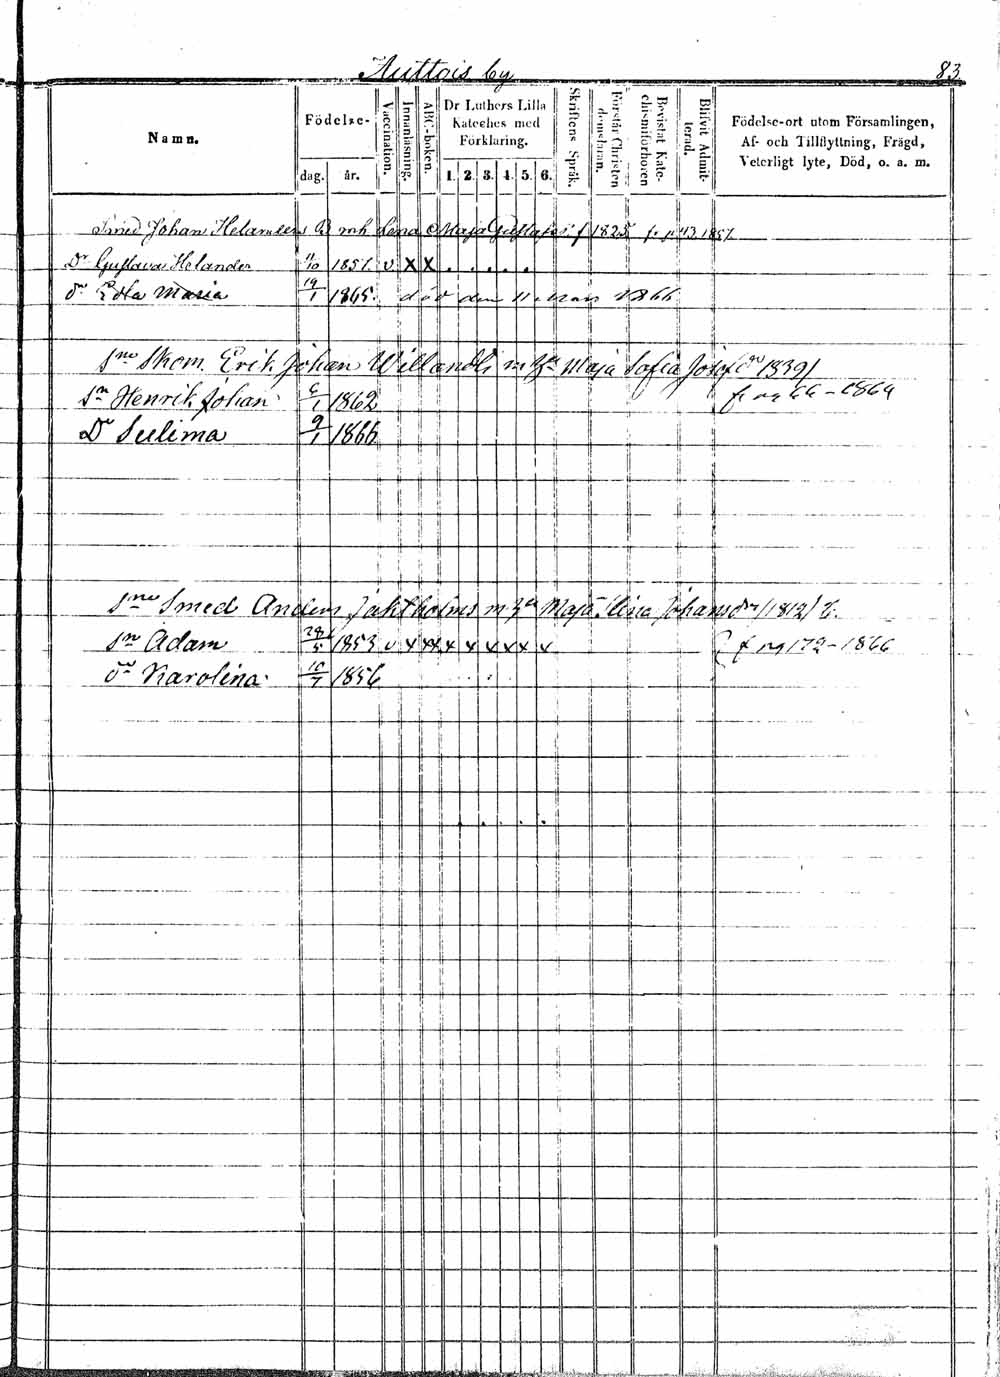 Auttois by
83
Namn.
Födelse-
dag.
år.
Vaccination.
Innanläsning.
ABC-boken.
Dr Luthers Lilla
Kateches med
Förklaring.
1. 2. 3. 4. 5. 6.
Skriftens Språk.
Förstår Christen
domsläran.
Bevistat Kate-
chismiförhören
Blifvit Admit-
terad.
Födelse-ort utom Församlingen,
Af- och Tillflyttning, Frägd,
Veterligt lyte, Död, o. a. m.
Smed Johan Helanders B mh Lena Maja f 1825 1857.
Dr Gustava Helander 11/10 1857. v x x . . . . .
dr Edla Maria 19/1 1865. död den 11 Mars 1866
Sne Skom. Erik Johan Willandts m Maja Sofia 1839/
Sn Henrik Johan 6/1 1862 fr pag 64 - 1864
Dr Sulima 9/1 1866
Sne Smed Anders Jaktholms m Maja Lina Johansdr /1812/
Sn Adam 28/5 1853 v x xx x x x xx x fr pag 172 - 1866
dr Karolina 10/7 1856